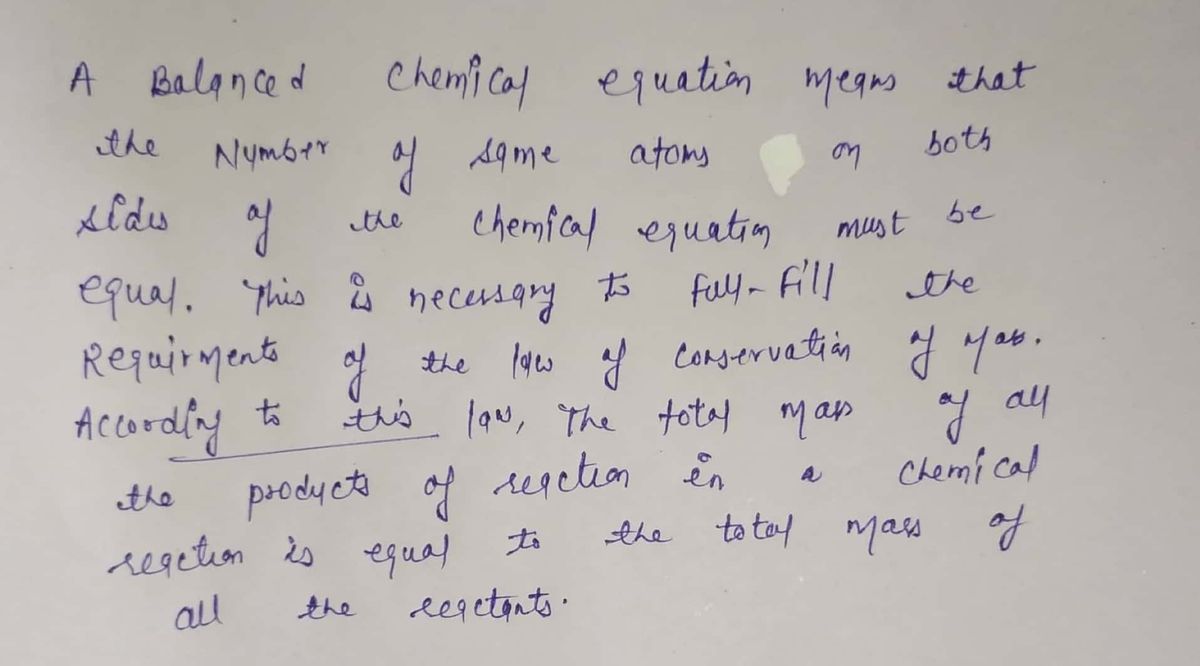 A Balanced Chemical equation means that
the Number of same atoms on both
sides of the chemical equation must be
equal. This is necessary to full-fill the
Requirments of the law of Conservation of Mass.
According to this law, The total mass of all
the products of reaction in a chemical
reaction is equal to the total mass of
all the reactants.